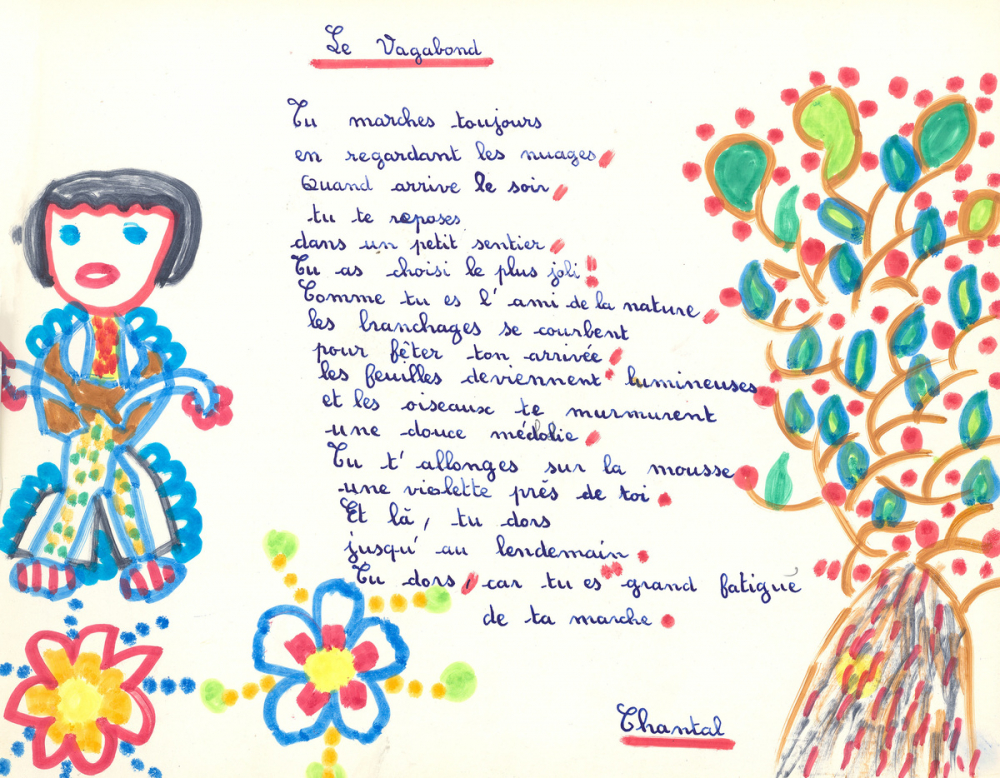 Le Vagabond
Tu marches toujours
en regardant les nuages,
Quand arrive le soir,
tu te reposes
dans un petit sentier,
Tu as choisi le plus joli !
Comme tu es l'ami de la nature,
les branchages se courbent
pour fêter ton arrivée,
les feuilles deviennent lumineuses
et les oiseaux te murmurent
une douce médolie,
Tu t'allonges sur la mousse
une violette près de toi.
Et là, tu dors
jusqu'au lendemain.
Tu dors, car tu es grand fatigué
de ta marche.
Chantal